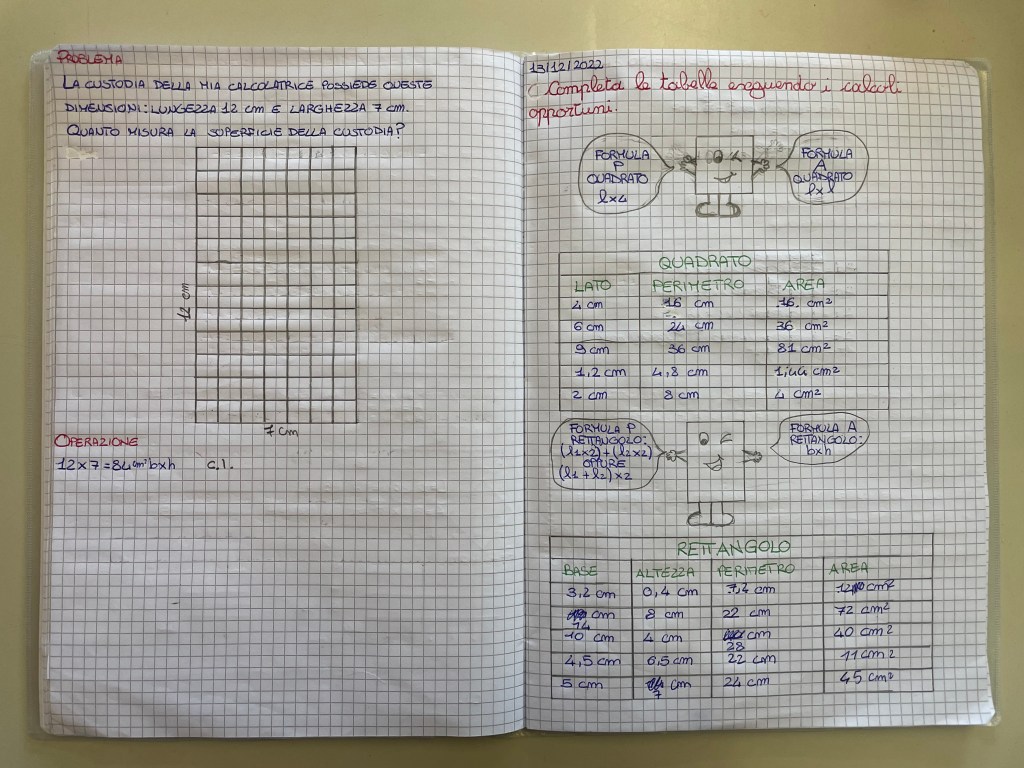 PROBLEMA
LA CUSTODIA DELLA MIA CALCOLATRICE POSSIEDE QUESTE
DIMENSIONI: LUNGEZZA 12 cm E LARGHEZZA 7 cm.
QUANTO MISURA LA SUPERFICIE DELLA CUSTODIA?
12 cm
7 cm
OPERAZIONE
12 x 7 = 84 cm² bxh C.I.
13/12/2022
Completa le tabelle eseguendo i calcoli
opportuni.
FORMULA
P
QUADRATO
lx4
FORMULA
A
QUADRATO
lxl
QUADRATO
LATO PERIMETRO AREA
4 cm 16 cm 16 cm²
6 cm 24 cm 36 cm²
9 cm 36 cm 81 cm²
1,2 cm 4,8 cm 1,44 cm²
2 cm 8 cm 4 cm²
FORMULA P
RETTANGOLO:
(l1x2)+(l2x2)
OPPURE
(l1+l2)x2
FORMULA A
RETTANGOLO:
bxh
RETTANGOLO
BASE ALTEZZA PERIMETRO AREA
3,2 cm 0,4 cm 7,2 cm cm²
cm 8 cm 22 cm 72 cm²
14
10 cm 4 cm cm 40 cm²
28
4,5 cm 6,5 cm 22 cm 11 cm²
5 cm cm 24 cm 45 cm²
7